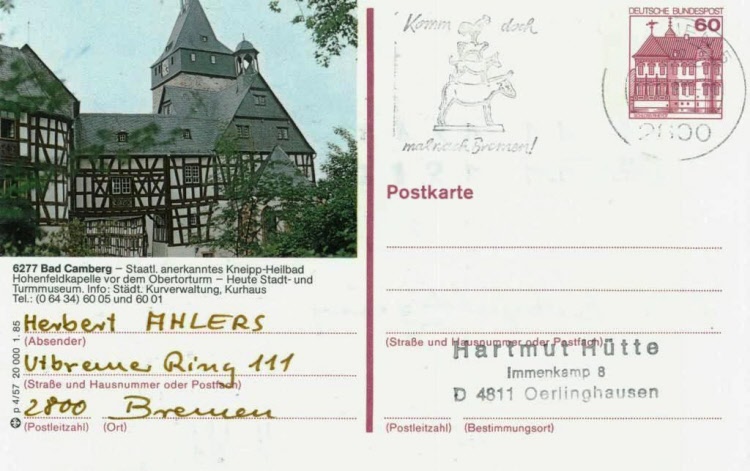 Komm doch
mal nach Bremen!
DEUTSCHE BUNDESPOST
60
2800
Postkarte
6277 Bad Camberg – Staatl. anerkanntes Kneipp-Heilbad
Hohenfeldkapelle vor dem Obertorturm – Heute Stadt- und
Turmmuseum. Info: Städt. Kurverwaltung, Kurhaus
Tel.: (0 64 34) 60 05 und 60 01
Herbert AHLERS
(Absender)
Utbremer Ring 111
(Straße und Hausnummer oder Postfach)
2800 Bremen
(Postleitzahl) (Ort)
p 4/57 20 000 1.85
(Straße und Hausnummer oder Postfach)
Hartmut Hütte
Immenkamp 8
D 4811 Oerlinghausen
(Postleitzahl) (Bestimmungsort)